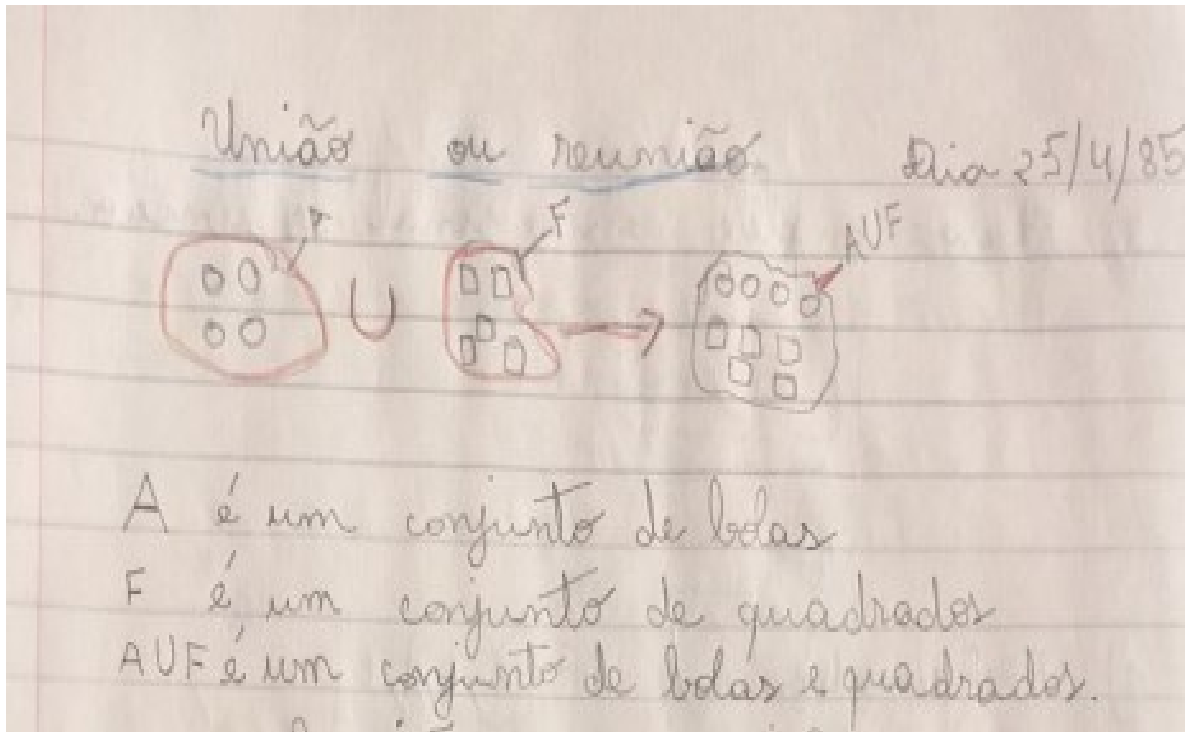 União ou reunião Dia 25/4/85
F AUF
U
A é um conjunto de bolas
F é um conjunto de quadrados
AUF é um conjunto de bolas e quadrados.